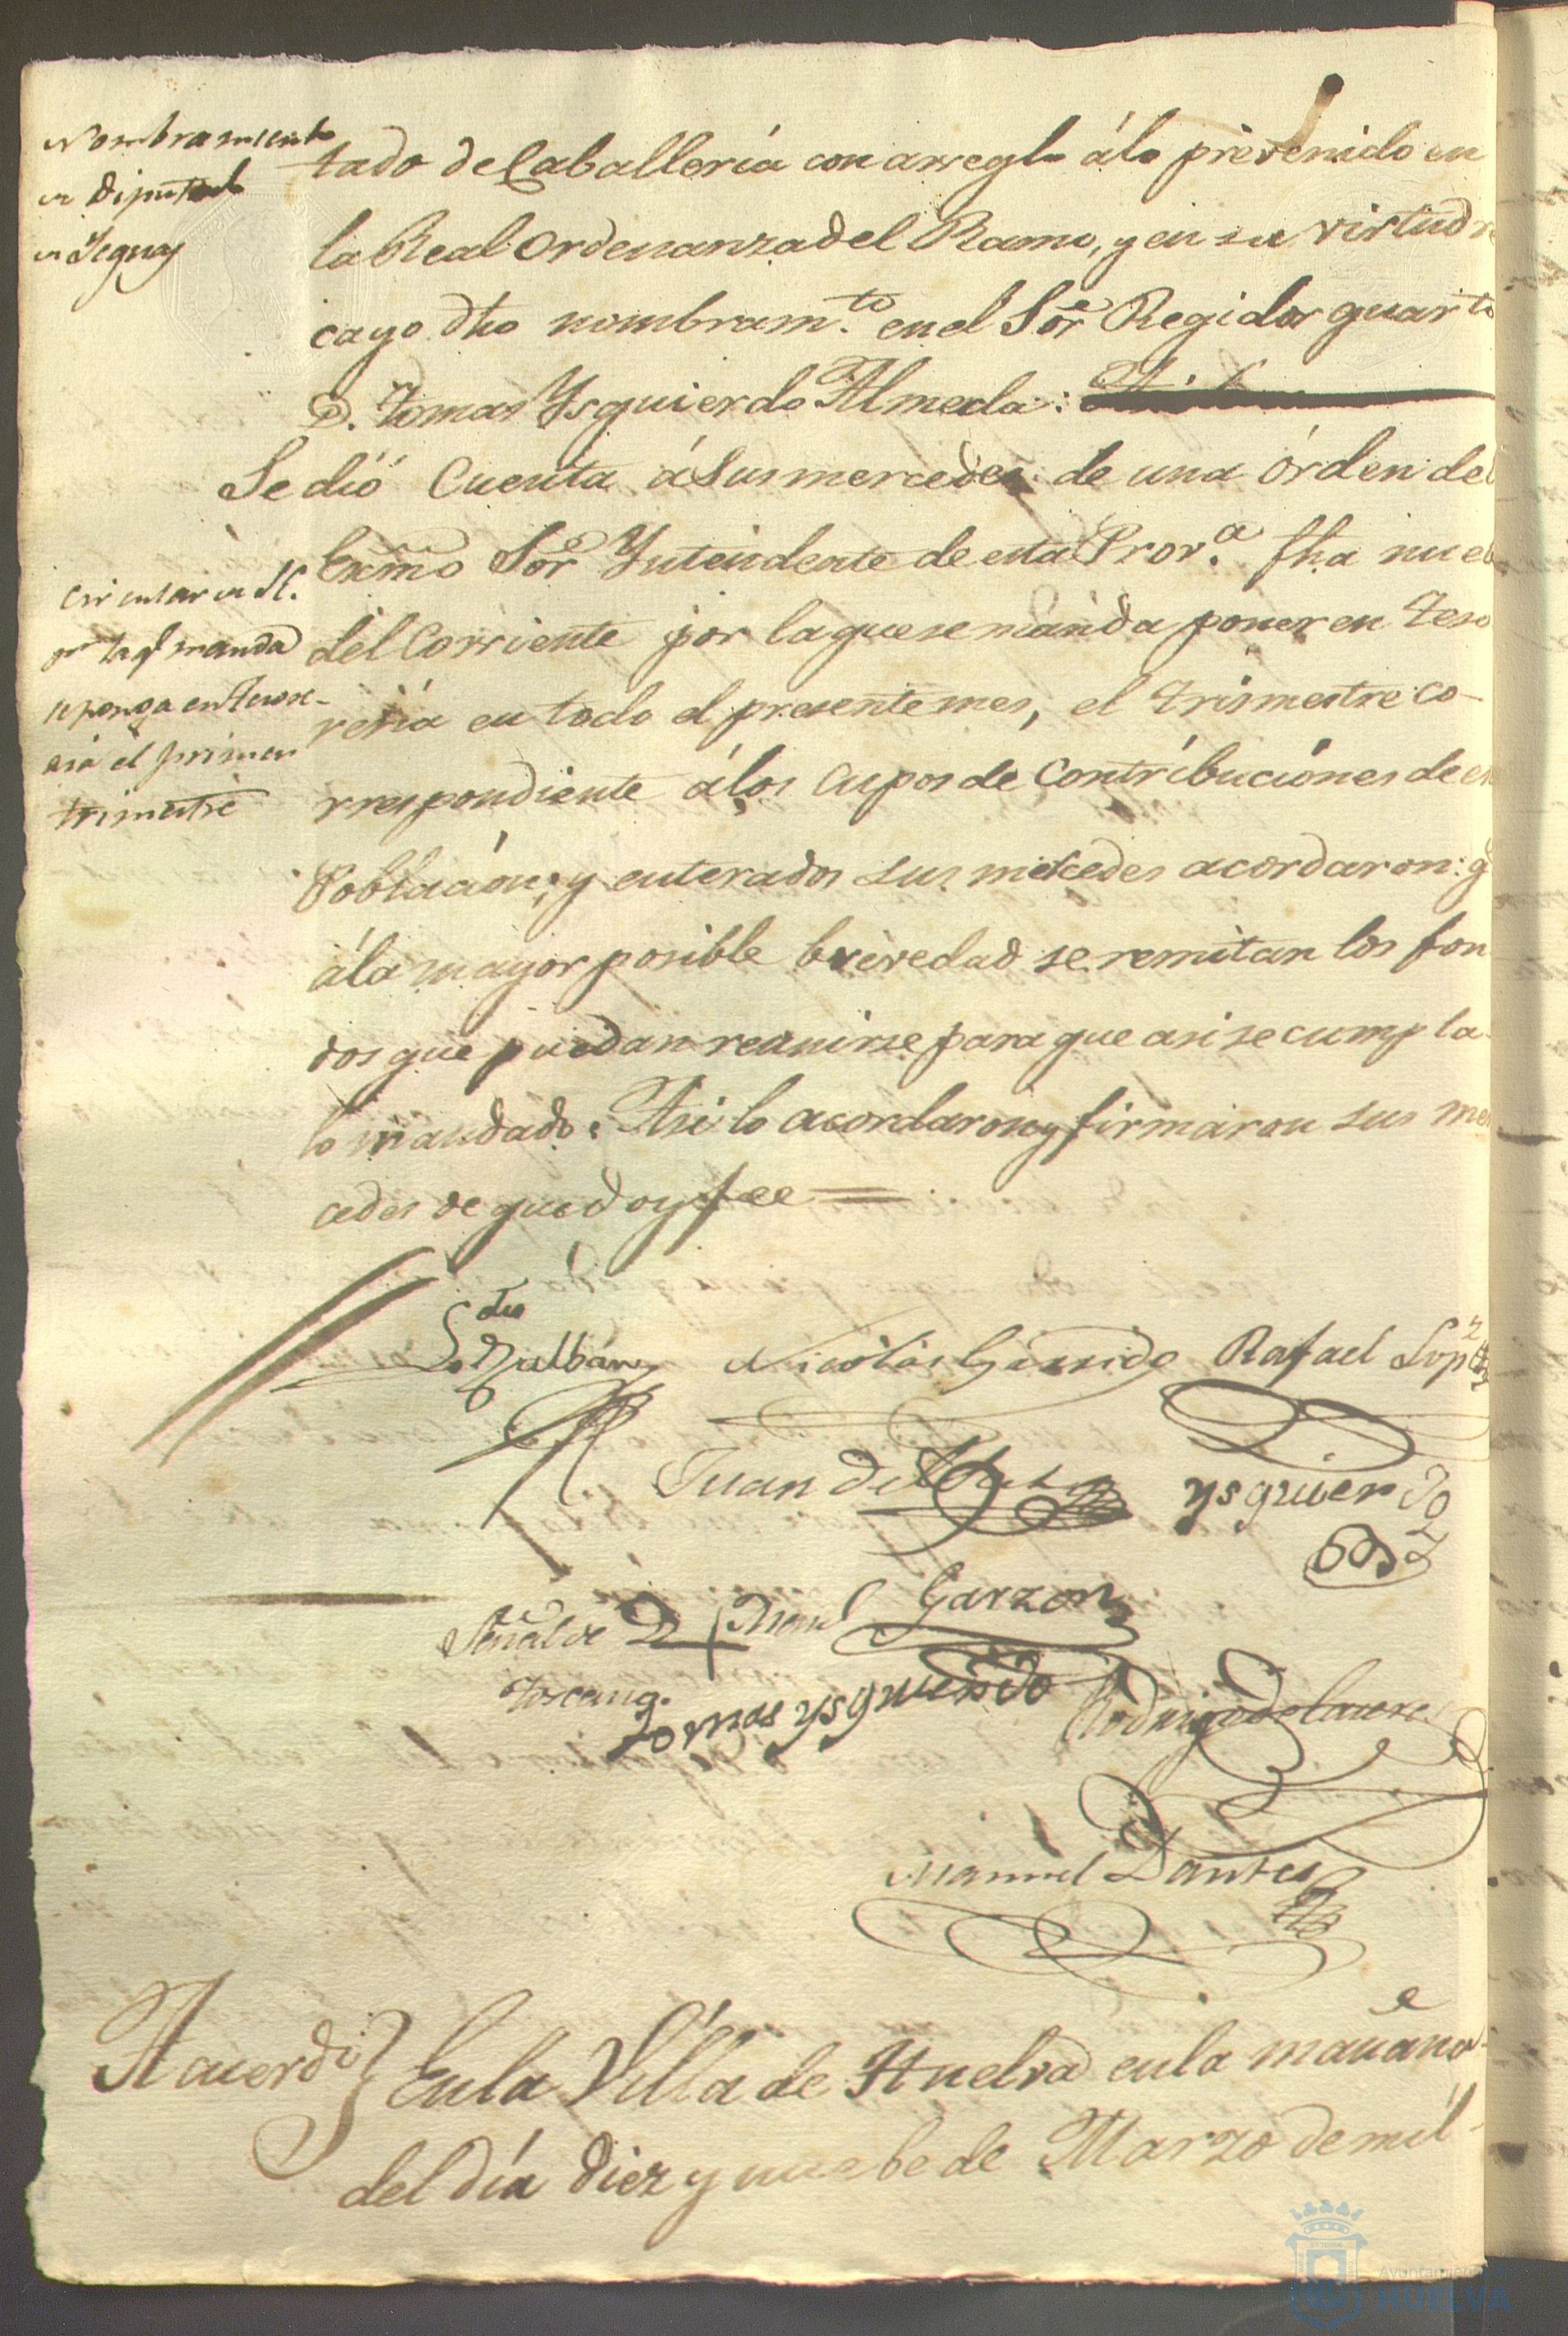 Nombramiento
de Diputado
de Yeguas
tado de Caballería con arreglo á lo prevenido en
la Real Ordenanza del Ramo, y en su virtud re
cayo dho nombram.to en el Sor. Regidor quarto
D. Tomas Ysquierdo Almeda:
Se dió Cuenta á Sus mercedes de una órden del
Exmo Sor Yntendente de esta Prov.a fha nuebe
del Corriente por la que se manda poner en Teso
rería en todo el presente mes, el trismestre co-
rrespondiente á los Cupos de Contribuciones de esta
Poblacion; y enterados sus mercedes acordaron: q
á la mayor posible brevedad se remitan los fon
dos que puedan reunirse para que asi se cumpla
lo mandado. Asi lo acordaron y firmaron sus mer
cedes de que doy fee =
Circular de
por la q. manda
se ponga en Tesore-
ria el primer
trimestre
Nicolás Garrido Rafael Lopz
Juan de ysquierdo
Señal de + Man.l Garzon
Toscano.
Tomas ysquierdo Rodrigo
Manuel Dantes
Acuerdo } En la Villa de Huelva en la mañana
del día diez y nuebe de Marzo de mil
Ayuntamiento de
HUELVA